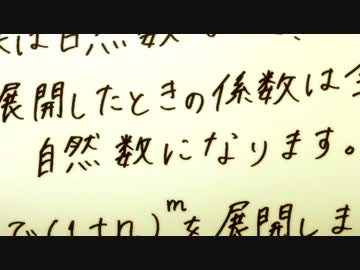 は自然数
展開したときの係数は全
自然数になります。
で(1+n)^mを展開しま